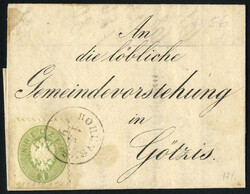 An
die löbliche
Gemeindevorstehung
in
Götzis.